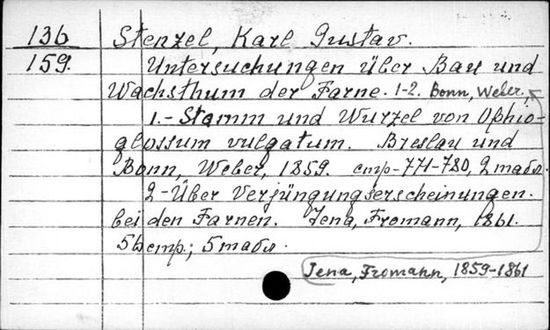 136 Stenzel, Karl Gustav.
159. Untersuchungen über Bau und
Wachsthum der Farne. 1-2. Bonn, Weber.
1.- Stamm und Wurzel von Ophio-
glossum vulgatum. Breslau und
Bonn, Weber, 1859. стр-771-780, 2 табл.
2-Über Verjüngungserscheinungen.
bei den Farnen. Jena, Fromann, 1861.
56стр.; 5 табл.
Jena, Fromann, 1859-1861